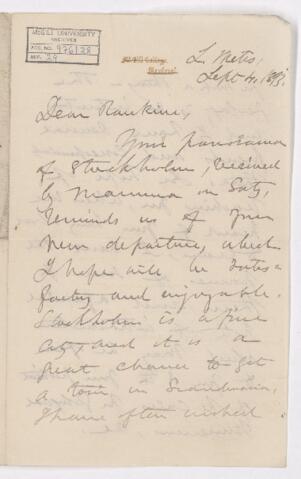 McGILL UNIVERSITY
ARCHIVES
ACC. NO. 976/28
REF. 29
McGill College,
Montreal.
L. Metis,
Sept 4, 1893.
Dear Rankine,
Your panorama
of Stockholm, received
by Mamma on Saty,
reminds us of your
new departure, which
I hope will be satis-
factory and enjoyable.
Stockholm is a fine
city, and it is a
great chance to get
a tour in Scandinavia.
I have often wished